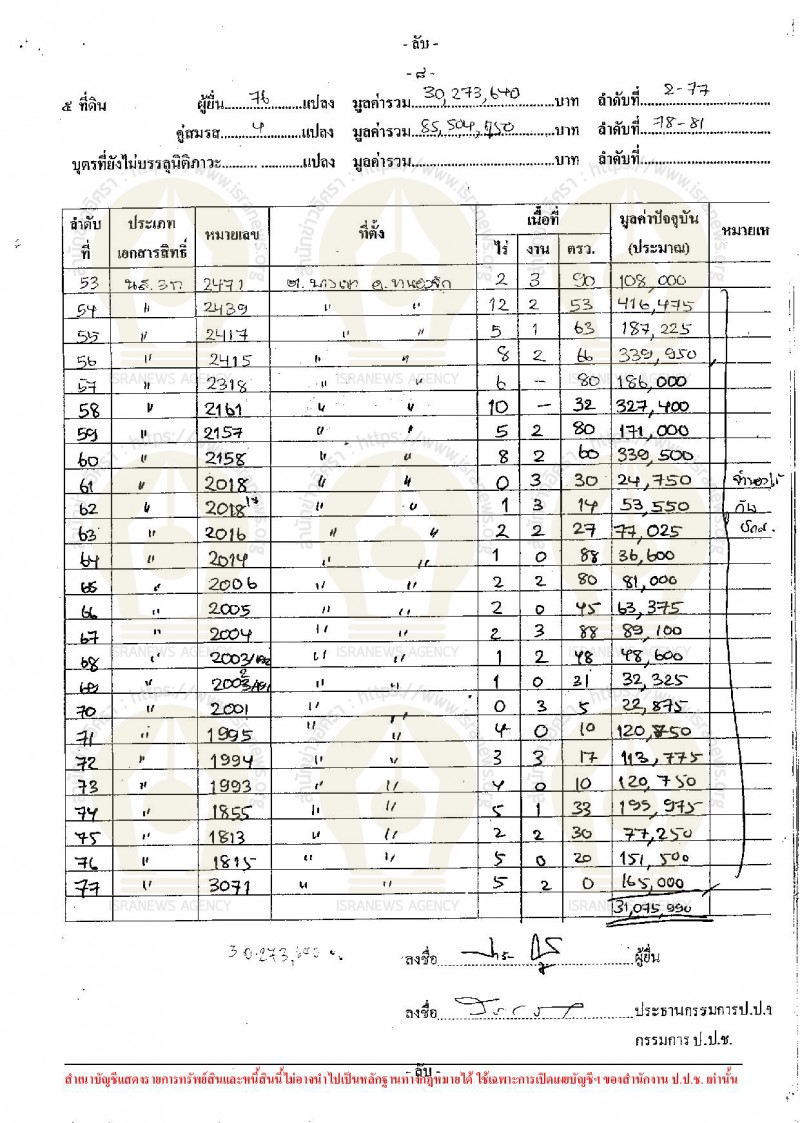 - ลับ -
- ๘ -
๕ ที่ดิน ผู้ยื่น 76 แปลง มูลค่ารวม 30,273,640 บาท ลำดับที่ 2-77
คู่สมรส 4 แปลง มูลค่ารวม 85,504,750 บาท ลำดับที่ 78-81
บุตรที่ยังไม่บรรลุนิติภาวะ แปลง มูลค่ารวม บาท ลำดับที่
ลำดับที่ ประเภทเอกสารสิทธิ์ หมายเลข ที่ตั้ง เนื้อที่ ไร่ งาน ตรว. มูลค่าปัจจุบัน (ประมาณ) หมายเห
53 นส.3ก 2471 2 3 90 108,000
54 " 2439 " " 12 2 53 416,475
55 " 2417 " " 5 1 63 187,225
56 " 2415 " " 8 2 66 339,950
57 " 2318 " " 6 - 80 186,000
58 " 2161 " " 10 - 32 327,400
59 " 2157 " " 5 2 80 171,000
60 " 2158 " " 8 2 60 339,500
61 " 2018 " " 0 3 30 24,750
62 " 2018 " " 1 3 14 53,550 กับ
63 " 2016 " " 2 2 27 77,025
64 " 2014 " " 1 0 88 36,600
65 " 2006 " " 2 2 80 81,000
66 " 2005 " " 2 0 45 63,375
67 " 2004 " " 2 3 88 89,100
68 " " " 1 2 48 48,600
69 " " " 1 0 31 32,325
70 " 2001 " " 0 3 5 22,875
71 " 1995 " " 4 0 10 120,750
72 " 1994 " " 3 3 17 113,775
73 " 1993 " " 4 0 10 120,750
74 " 1855 " " 5 1 33 199,975
75 " 1813 " " 2 2 30 77,250
76 " 1815 " " 5 0 20 151,500
77 " 3071 " " 5 2 0 165,000
31,075,990
ลงชื่อ ผู้ยื่น
ลงชื่อ ประธานกรรมการป.ป.ช
กรรมการ ป.ป.ช.
- ลับ -
สำเนาบัญชีแสดงรายการทรัพย์สินและหนี้สินนี้ไม่อาจนำไปเป็นหลักฐานทางกฎหมายได้ ใช้เฉพาะการเปิดเผยบัญชีฯ ของสำนักงาน ป.ป.ช. เท่านั้น
สำนักข่าวอิศรา : https://www.isranews.org
ISRANEWS AGENCY